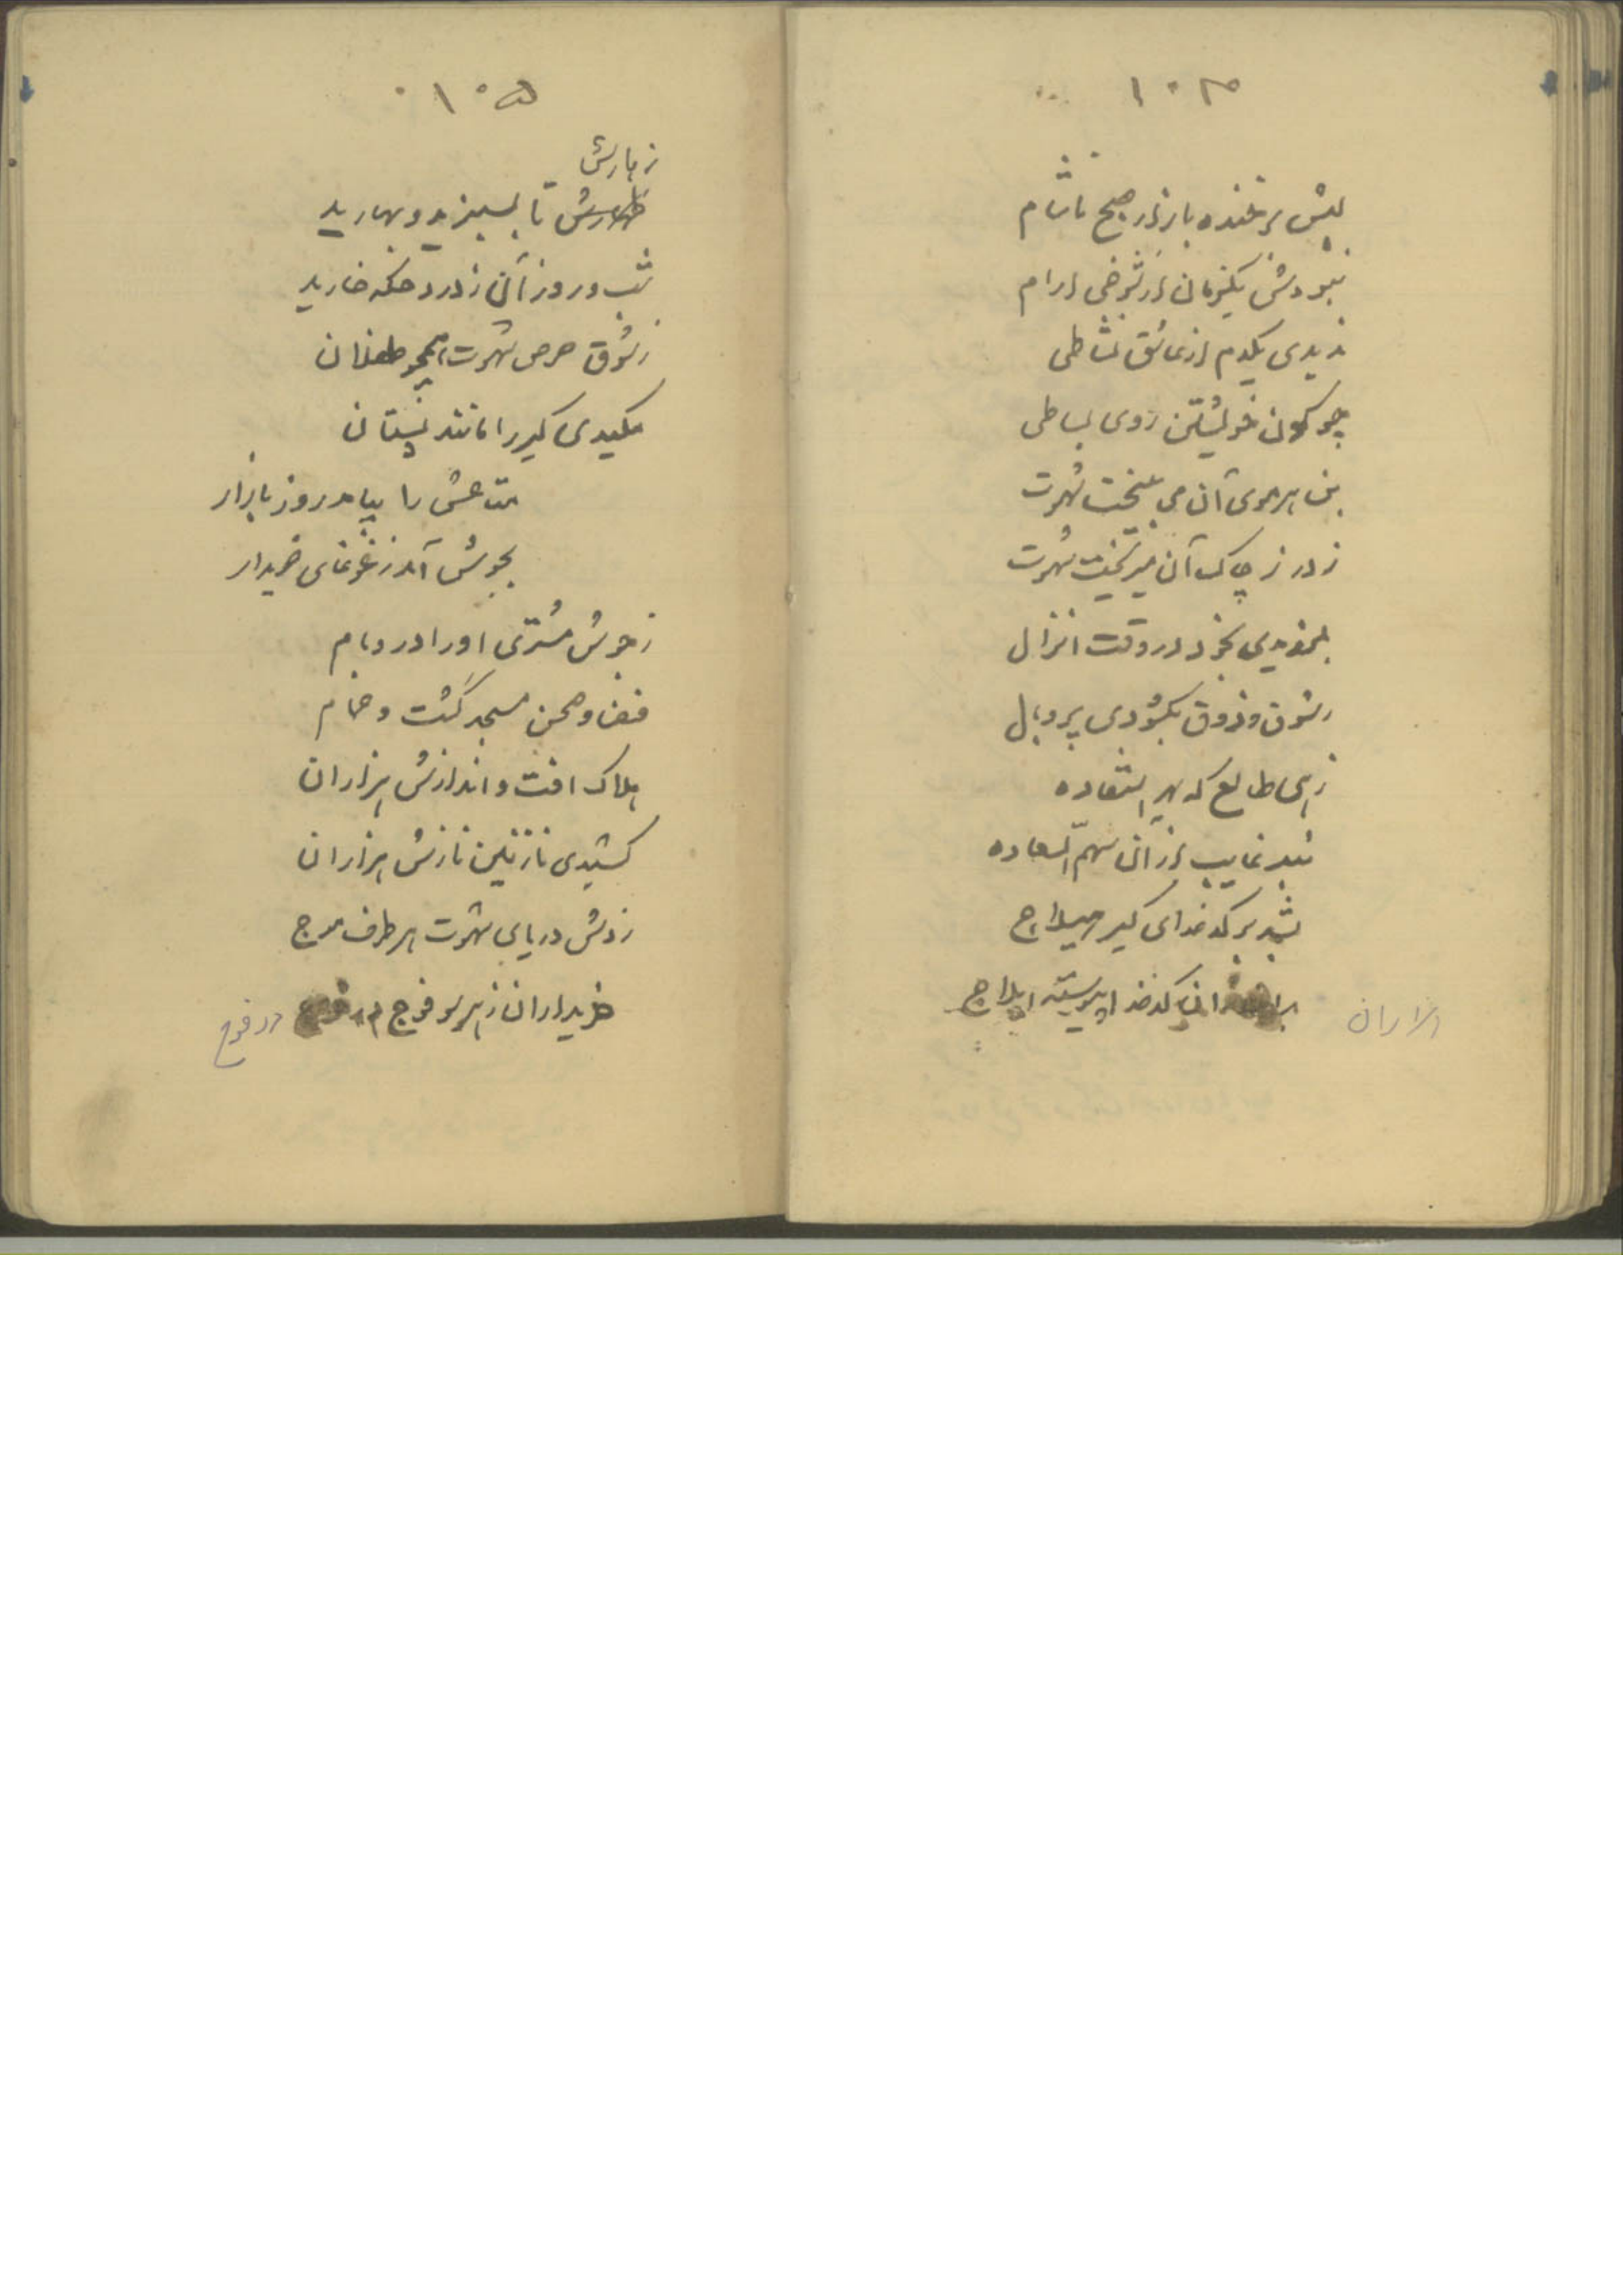 ۱۰۴
لبش پر خنده باز از صبح تا شام
نبودش یکزمان از شوخی ارام
ندیدی یکدم از عاشق نشاطی
چو کون خویشتن روی بساطی
بن هر موی آن می شهوت
ز درز چاک آن میریخت شهوت
بخود در وقت انزال
ز شوق و ذوق بگشودی پر و بال
زهی طالع که بهر استفاده
نبد غایب از آن سهم السعاده
بشد بر کدخدای کیر هیلاج
کدخدا پیوسته ایلاج
هزاران
۱۰۵
ز خارش
خارش تا
شب و روز آن ز درد حکه خارید
ز شوق حرص شهوت همچو طفلان
مکیدی کیر را مانند پستان
متاعش را بیامد روز بازار
بجوش آمد ز غوغای خریدار
ز جوش مشتری او را در و بام
فضا و صحن مسجد گشت و حمام
هلاک افت و اندازش هزاران
کشیدی نازنین نازش هزاران
زدش دریای شهوت هر طرف موج
خریداران ز هر سو فوج در فوج
در فوج